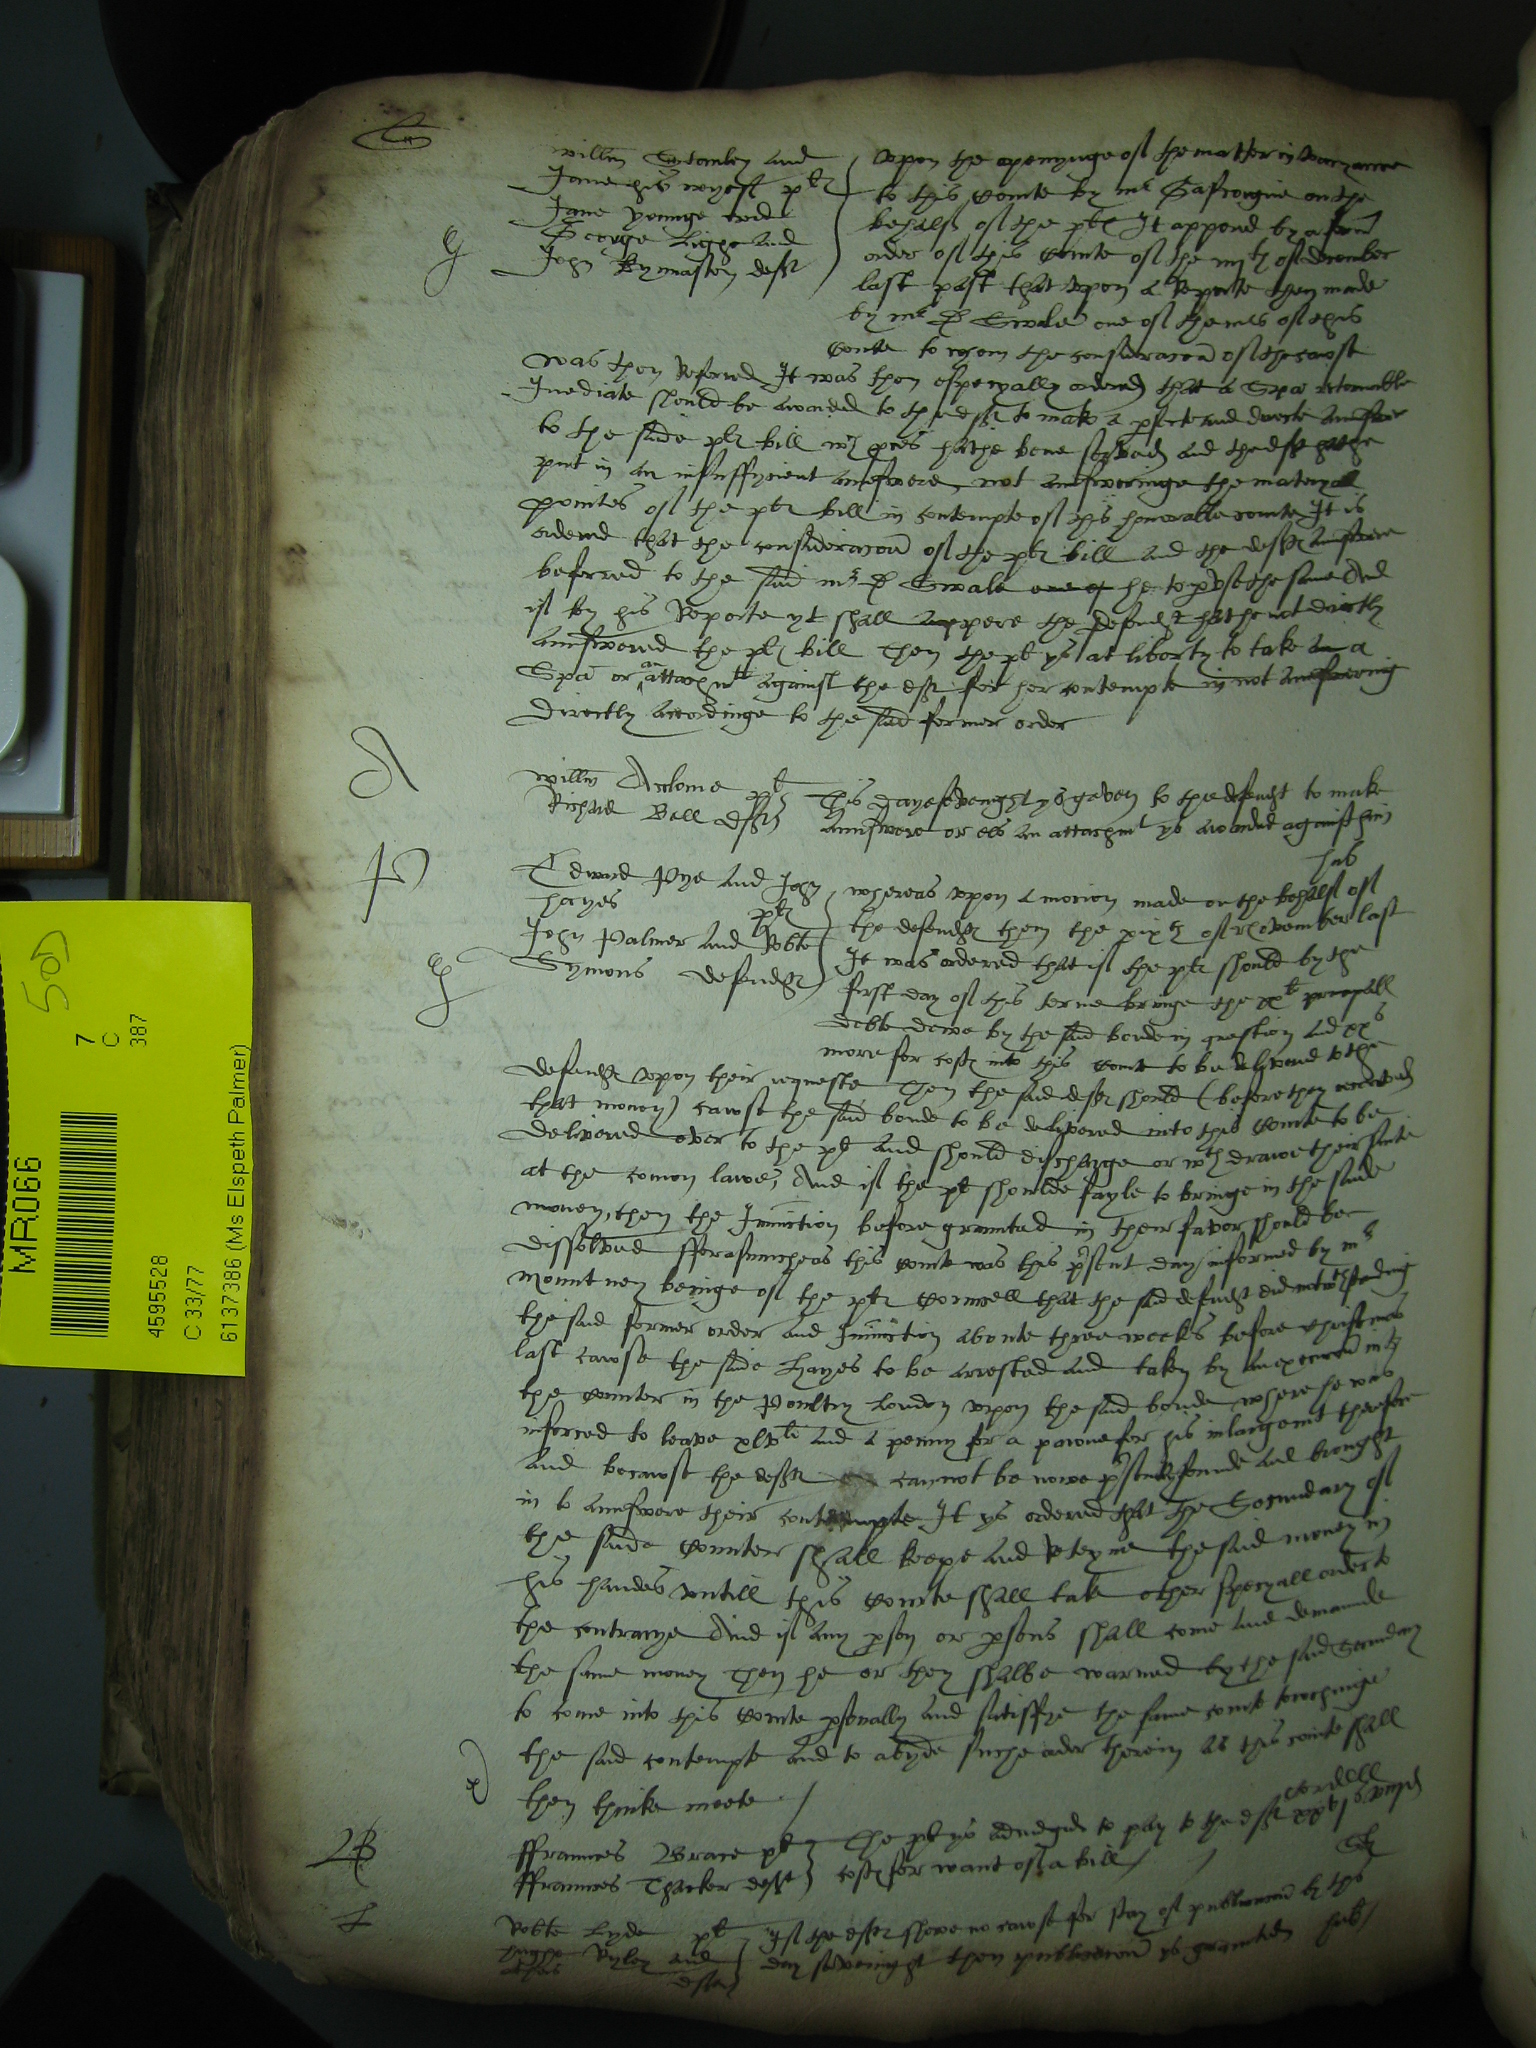 willm Stromley and
Jane his wyeff plts
Jane Younge wid
George Lighe and
John Kynaston defts
Upon the openynge of the matter in varyaunce
to this Courte by mr Gascoigne on the
behalf of the plts It appered by a form
order of this Courte of the iiijth of december
last past that upon a Reporte then made
by mr D Swale one of the mrs of this
Courte to whom the consideracon of the cawse
was then referred It was then especyally ordered that a Spa retornable
Imediate should be awarded to the deft to make a pfecte and directe aunswere
to the saide plts bill wch proces hathe bene served and the deft hathe
put in an insuffycient aunswere, not aunsweringe the materyall
pointes of the plts bill in contempte of this honorable courte It is
ordered that the consideracon of the plts bill and the defts aunswere
beferred to the said mr D Swale one of he to pvse the same And
if by his Reporte yt shall appere the Defendt hathe not directly
aunswered the plts bill Then the plt ys at liberty to take an a
Spa or an attachmt against the deft for her contempte in not aunswering
directly accordinge to the said former order
willm Anslome plt
Richard Bell deft
This daye sevenight ys geven to the defendt to make
aunswere or els an attachmt ys awarded against him
hub
Edward Pye and John
Hayes plts
John Palmer and Robte
Symons defendts
whereas upon a motion made on the behalf of
the defendts then the xixth of November last
It was ordered that if the plts should by the
first day of this terme bringe the xxli principall
debte dewe by the said bonde in question and xxs
more for costs into this Courte to be delivered to the
defendts upon their requeste Then the said defts should (before they received
that money) cawse the said bonde to be delivered into this Courte to be
delivered over to the plt and should discharge or wthdrawe their suite
at the comon lawe, And if the plt shoulde fayle to bringe in the saide
money, then the Iniunction before graunted in their favor should be
dissolved fforasmucheas this Courte was this present day informed by mr
Mountney beinge of the plts Councell that the said defendts did notwthstanding
the said former order and Iniunction aboute three weeks before christmas
last cawse the saide Hayes to be arrested and taken by an execucon into
the Counter in the Poultry London upon the said bonde, where he was
inforced to leave xlvli and a penny for a pawne for his inlargemt therefore
and becawse the defts cannot be nowe presently founde and brought
in to aunswere their contempte It ys ordered that the Secundary of
the saide Counter shall keepe and Reteyne the said money in
his handes untill this Courte shall take other specyall order to
the contrarye And if any pson or psons shall come and demaunde
the same money Then he or they shalbe warned by the said Secundary
to come into this Courte psonally and satisffye the same courte towchinge
the said contempte and to abyde suche order therein as this courte shall
then thinke meete /
Cordell
ffraunces Brace plt
ffraunces Thacker deft
The plt ys adiudged to pay to the deft
costs for want of a bill /
Robte Lyde plt
Hughe Ryley and
others defts
If the defts shewe no cawse for stay of publicacon by this
day sevenight then publicacon ys graunted hub /
505
MR066
7
C
387
4595528
C 33/77
6137386 (Ms Elspeth Palmer)